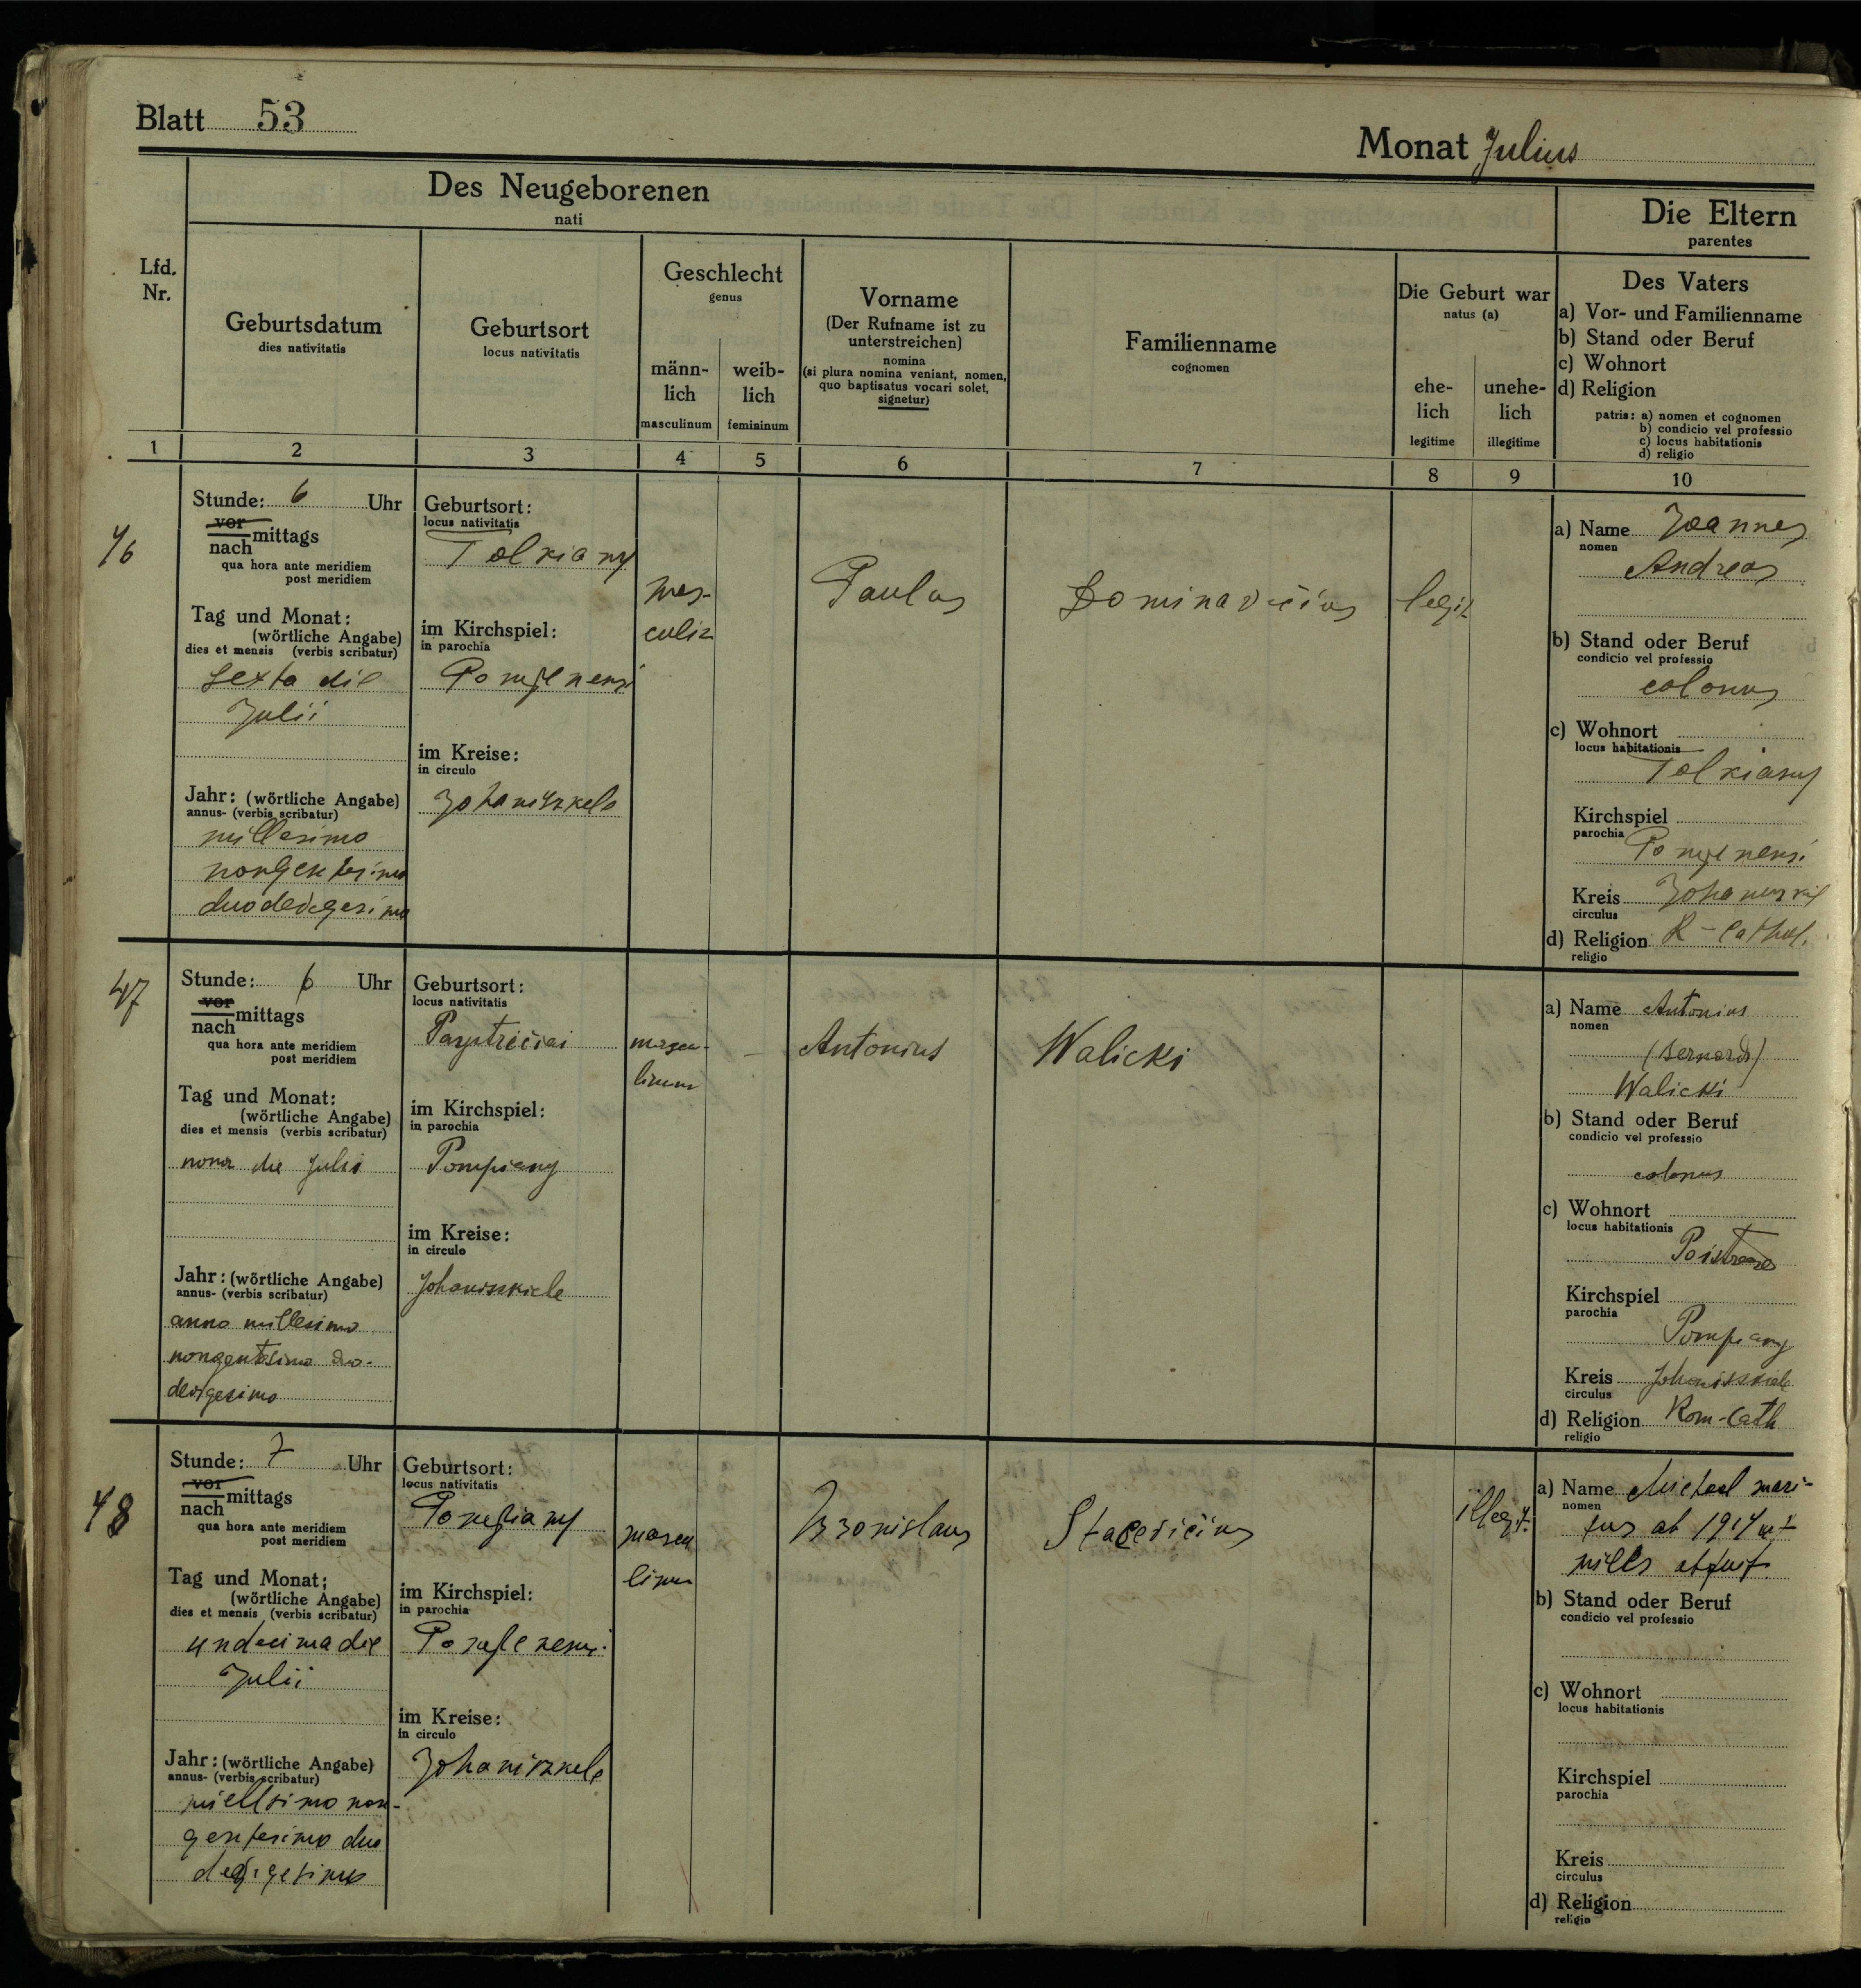 Blatt 53
Monat Julius
Des Neugeborenen
nati
Die Eltern
parentes
Lfd. Nr.
Geburtsdatum
dies nativitatis
Geburtsort
locus nativitatis
Geschlecht
genus
männ-
lich
masculinum
weib-
lich
femininum
Vorname
(Der Rufname ist zu
unterstreichen)
nomina
(si plura nomina veniant, nomen,
quo baptisatus vocari solet,
signetur)
Familienname
cognomen
Die Geburt war
natus (a)
ehe-
lich
legitime
unehe-
lich
illegitime
Des Vaters
a) Vor- und Familienname
b) Stand oder Beruf
c) Wohnort
d) Religion
patris: a) nomen et cognomen
b) condicio vel professio
c) locus habitationis
d) religio
1 2 3 4 5 6 7 8 9 10
46
Stunde: 6 Uhr
vor
nach mittags
qua hora ante meridiem
post meridiem
Tag und Monat:
(wörtliche Angabe)
dies et mensis (verbis scribatur)
sexta die
Julii
Jahr: (wörtliche Angabe)
annus- (verbis scribatur)
millesimo
nongentesimo
duodevigesimo
Geburtsort:
locus nativitatis
Tolkiany
im Kirchspiel:
in parochia
im Kreise:
in circulo
Johaniszkele
mas-
culin
Paulus
Dominavičius
legit
a) Name Joannes
nomen
Andreas
b) Stand oder Beruf
condicio vel professio
colonus
c) Wohnort
locus habitationis
Tolkiany
Kirchspiel
parochia
Kreis
circulus
d) Religion R-Cathol.
religio
47
Stunde: 6 Uhr
vor
nach mittags
qua hora ante meridiem
post meridiem
Tag und Monat:
(wörtliche Angabe)
dies et mensis (verbis scribatur)
nona die Julii
Jahr: (wörtliche Angabe)
annus- (verbis scribatur)
anno millesimo
nongentesimo duo-
devigesimo
Geburtsort:
locus nativitatis
im Kirchspiel:
in parochia
Pompiany
im Kreise:
in circulo
Johaniszkiele
mascu-
linum
-
Antonius
Walicki
a) Name Antonius
nomen
(Bernardi)
Walicki
b) Stand oder Beruf
condicio vel professio
colonus
c) Wohnort
locus habitationis
Kirchspiel
parochia
Pompiany
Kreis Johaniszkiele
circulus
d) Religion Rom-Cath
religio
48
Stunde: 7 Uhr
vor
nach mittags
qua hora ante meridiem
post meridiem
Tag und Monat:
(wörtliche Angabe)
dies et mensis (verbis scribatur)
undecima die
Julii
Jahr: (wörtliche Angabe)
annus- (verbis scribatur)
millesimo non-
gentesimo duo
devigesimo
Geburtsort:
locus nativitatis
Pompiany
im Kirchspiel:
in parochia
im Kreise:
in circulo
Johaniszkele
mascu
linu
Bronislaus
illegit.
a) Name Michael mari-
nomen
tus ab 1914 ut
miles
b) Stand oder Beruf
condicio vel professio
c) Wohnort
locus habitationis
Kirchspiel
parochia
Kreis
circulus
d) Religion
religio